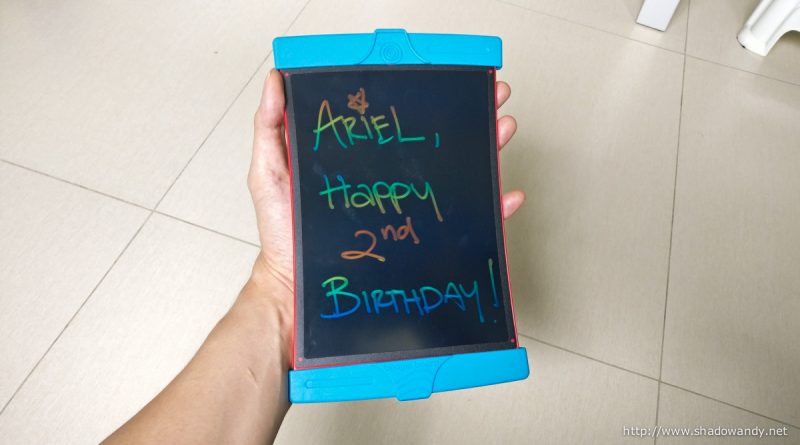 ARIEL,
Happy
2nd
BIRTHDAY!
http://www.shadowandy.net